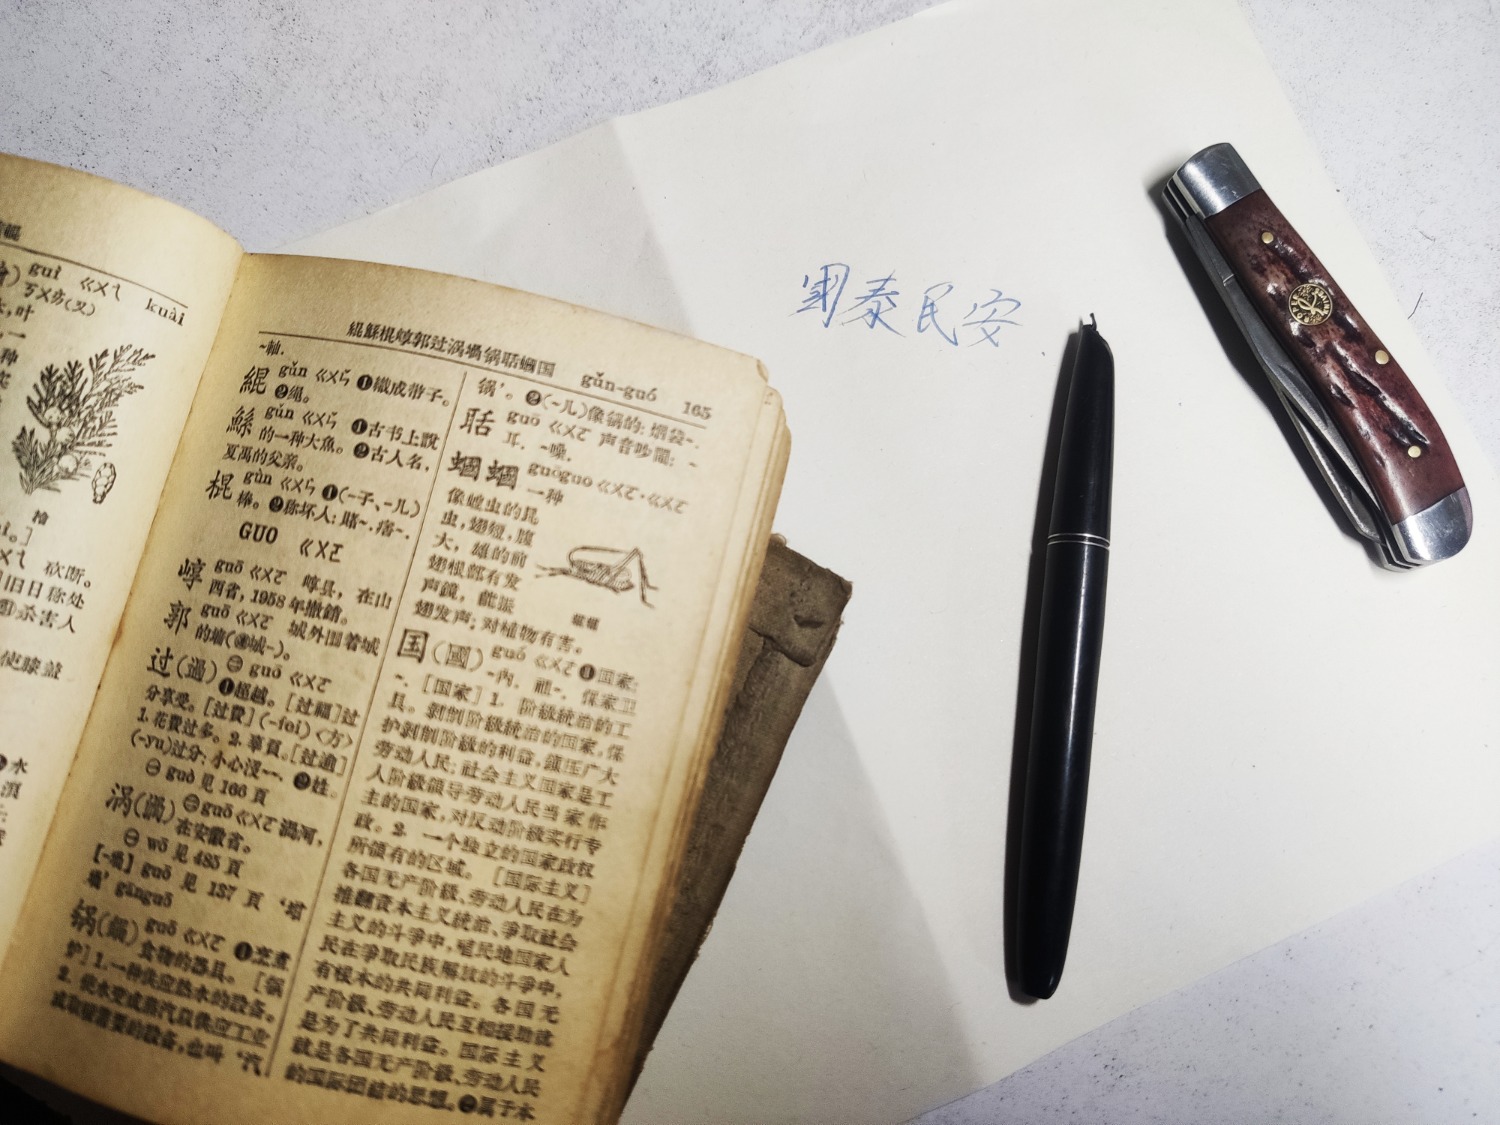 guì ㄍㄨㄟ
kuài
ㄎㄨㄞ(又)
砍断。
旧日称处
杀害人
使膝盖
緄鯀棍崞郭过涡堝锅聒蝈国 gǔn-guó 165
~軸.
緄 gǔn ㄍㄨㄣ ❶織成带子。
❷绳。
鯀 gǔn ㄍㄨㄣ ❶古书上說
的一种大魚。❷古人名,
夏禹的父亲。
棍 gùn ㄍㄨㄣ ❶(-子、-儿)
棒。❷称坏人:賭~.痞~.
GUO ㄍㄨㄛ
崞 guō ㄍㄨㄛ 崞县,在山
西省,1958年撤銷。
郭 guō ㄍㄨㄛ 城外围着城
的墙(城~)。
过(過) ㊁ guō ㄍㄨㄛ
❶超越。[过福]过
分享受。[过費](-fei)〈方〉
1.花費过多。2.辜負。[过逾]
(-yu)过分:小心没~~. ❷姓。
㊀ guò 見166頁
涡(渦) ㊁ guō ㄍㄨㄛ 渦河,
在安徽省。
㊀ wō 見485頁
guō 見 137 頁 ‘坩
堝’ gānguō
锅(鍋) guō ㄍㄨㄛ ❶烹煮
食物的器具。[锅
炉]1.一种供应热水的設备。
2.使水变成蒸汽以供应工业
或取暖需要的設备,也叫‘汽
锅’。❷(-儿)像锅的:烟袋~.
聒 guō ㄍㄨㄛ 声音吵鬧:~
耳. ~噪.
蝈蝈 guōguo ㄍㄨㄛ·ㄍㄨㄛ
一种
像蝗虫的昆
虫,翅短,腹
大,雄的前
翅根部有发
声鏡,能振
翅发声;对植物有害。
蝈蝈
国(國) guó ㄍㄨㄛ ❶国家:
~内. 祖~. 保家卫
~. [国家]1. 阶級統治的工
具。剥削阶級統治的国家,保
护剥削阶級的利益,鎮压广大
劳动人民;社会主义国家是工
人阶級领导劳动人民当家作
主的国家,对反动阶級实行专
政。2. 一个独立的国家政权
所領有的区域。[国际主义]
各国无产阶級、劳动人民在为
推翻資本主义統治、爭取社会
主义的斗爭中,殖民地国家人
民在爭取民族解放的斗爭中,
有根本的共同利益。各国无
产阶級、劳动人民互相援助就
是为了共同利益。国际主义
就是各国无产阶級、劳动人民
的国际团結的思想。❷属于本
國泰民安